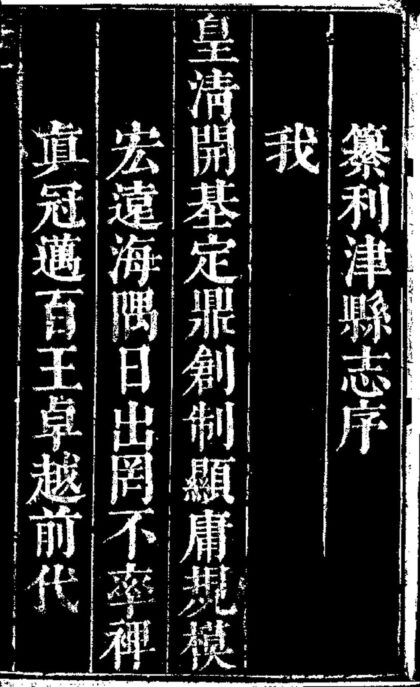 纂利津縣志序
我
皇清開基定鼎創制顯庸規模
宏遠海隅日出罔不率裨
眞冠邁百王卓越前代